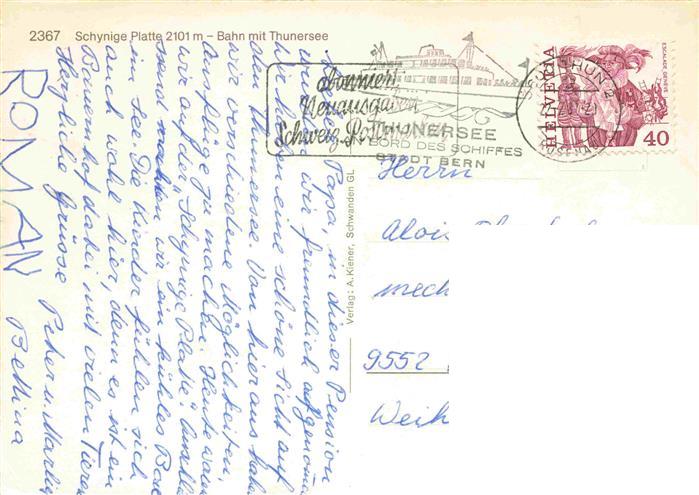 2367 Schynige Platte 2101 m – Bahn mit Thunersee
Papa, in dieser Pension
wir freundlich aufgenom
wir haben eine schöne Sicht auf
den Thunersee. Von hier aus hab
wir verschiedene Möglichkeiten,
Ausflüge zu machen. Heute waren
wir auf der „Schynige Platte".
sand wir ein kühles Bad
im See. Die Kinder fühlen sich
auch wohl hier, denn es ist ein
Bauernhof dabei mit vielen Tieren
Herzliche Grüsse Peter u. Marlis
Bettina
ROMAN
Verlag: A. Kiener, Schwanden GL
abonniert
Neuausgaben
Schweiz. Post
THUNERSEE
BORD DES SCHIFFES
STADT BERN
THUN 2
HELVETIA
ESCALADE GENÈVE
40
Herrn
Alois
mech
9552
Weih